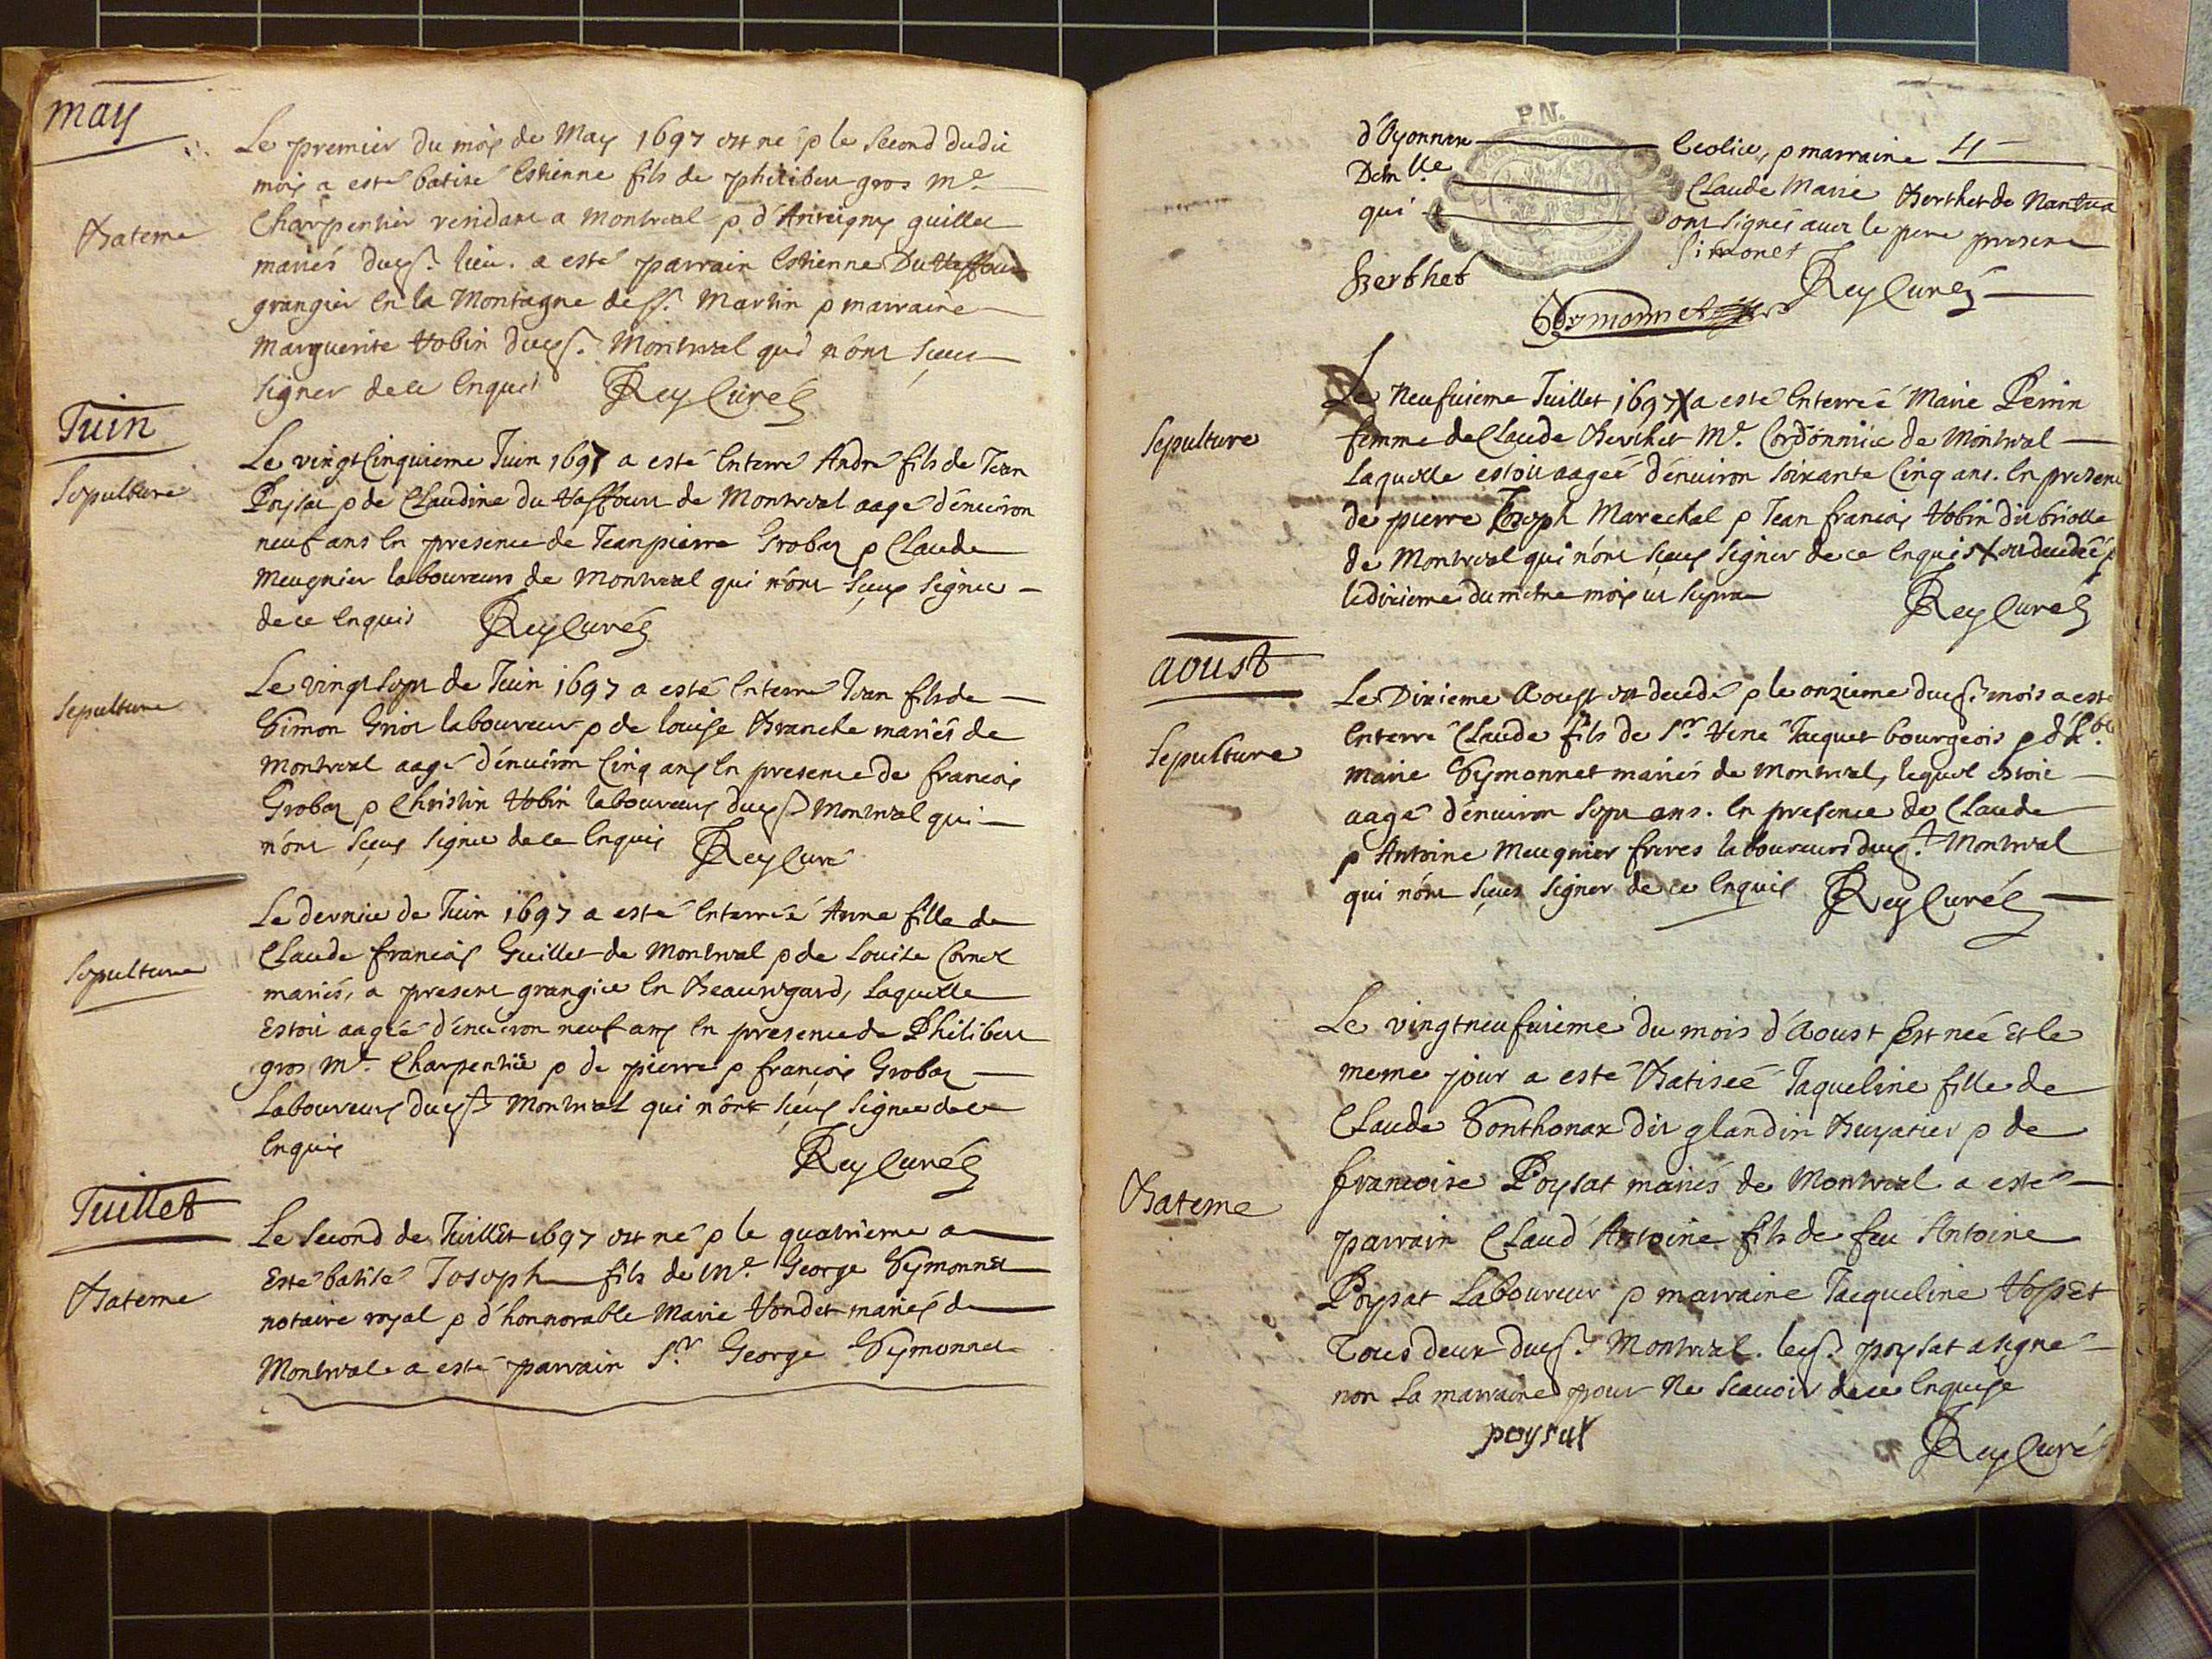 may
Le premier du mois de May 1697 est né & le second dudit
mois a esté batisé Estienne fils de philibert gros Me
Bateme
Charpentier residant a Montreal & d'Anteigny guillet
mariés dud. lieu. a esté parrain Estienne Du Vaffour
grangier en la Montagne de St. Martin & marraine
Marguerite Vobin dud. Montreal qui n'ont sceus
signer de ce Enquis Rey Curé
Juin
Sepulture
Le vingt Cinquieme Juin 1697 a esté Enterré André fils de Jean
Poysat & de Claudine du Vaffour de Montreal aagé d'environ
neuf ans En presence de Jean pierre Grobas & Claude
Meugnier laboureurs de Montreal qui n'ont sceus signer
de ce Enquis Rey Curé
Sepulture
Le vingt sept de Juin 1697 a esté Enterré Jean fils de
Simon Griot laboureur & de louise Branche mariés de
Montreal aagé d'environ Cinq ans En presence de francois
Grobas & Christin Vobin laboureurs dud. Montreal qui
n'ont sceus signer de ce Enquis Rey Curé
Sepulture
Le dernier de Juin 1697 a esté Enterrée Anne fille de
Claude francois Guillet de Montreal & de Louise Cornet
mariés, a present grangier En Beauregard, Laquelle
Estoit aagée d'environ neuf ans En presence de Philibert
gros Me. Charpentier & de pierre & françois Grobas
Laboureurs dud. Montreal qui n'ont sceus signer de ce
Enquis
Rey Curé
Juillet
Bateme
Le second de Juillet 1697 est né & le quatrieme a
Esté batisé Joseph fils de Me. George Symonnet
notaire royal & d'honnorable Marie Vondet mariés de
Montreal a esté parrain Sr. George Symonnet
P.N.
d'Oyonnax Ecolier, & marraine 4
Demlle Claude Marie Berthet de Nantua
qui ont signés avec le pere present
Simonet
Berthet
Rey Curé
Symonnet
Sepulture
Le Neufuieme Juillet 1697 X a esté Enterreé Marie Perrin
femme de Claude Berthet Me. Cordonnier de Montreal
Laquelle estoit aageé d'environ soixante Cinq ans. En presence
de pierre Joseph Marechal & Jean francois Vobin dit briolle
de Montreal qui n'ont sceus signer de ce Enquis X est decedeé &
le dixieme du meme mois ut supra
Rey Curé
aoust
Sepulture
Le Dixieme Aoust est decedé & le onzieme dud. mois a esté
Enterré Claude fils de Sr. René Jacquet bourgeois & d'h.ble
Marie Symonnet mariés de Montreal, lequel estoit
aagé d'environ sept ans. En presence de Claude
& Antoine Meugnier freres laboureurs dud. Montreal
qui n'ont sceus signer de ce Enquis Rey Curé
Le vingt neufuieme du mois d'Aoust Est neé Et le
meme jour a esté Batiseé Jaqueline fille de
Claude Tonthonax dit glandin Buyatier & de
Bateme
francoise Poysat mariés de Montreal a esté
parrain Claud' Antoine fils de feu Antoine
Poysat Laboureur & marraine Jacqueline
Tous deux dud. Montreal. led. poysat a signé
non La marraine pour Ne scavoir de ce Enquise
poysat
Rey Curé